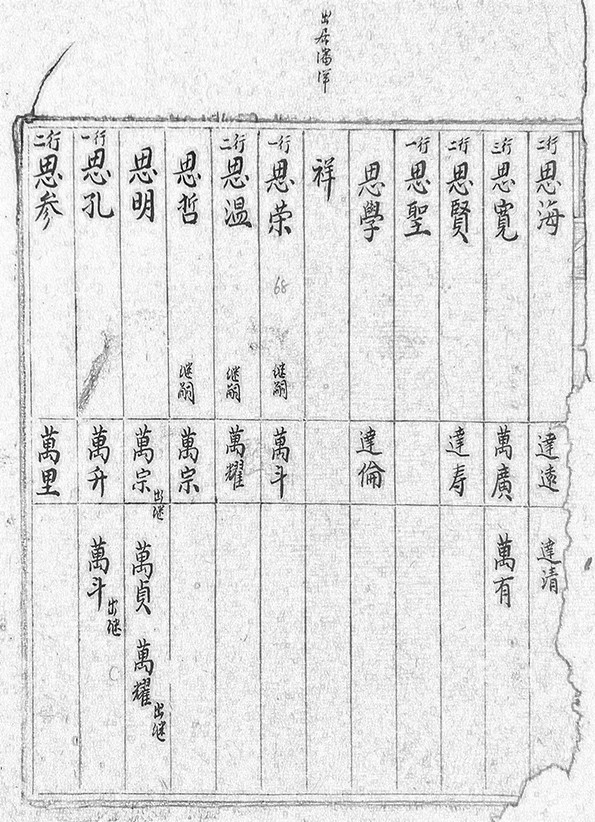 出居潘洋
二行 思海 達遠 達清
三行 思寬 萬廣 萬有
二行 思賢 達寿
一行 思聖
思學 達倫
祥
一行 思荣 68 继嗣 萬斗
二行 思温 继嗣 萬耀
思哲 继嗣 萬宗
思明 萬宗 出继 萬貞 萬耀 出继
一行 思孔 萬升 萬斗 出继
二行 思参 萬里